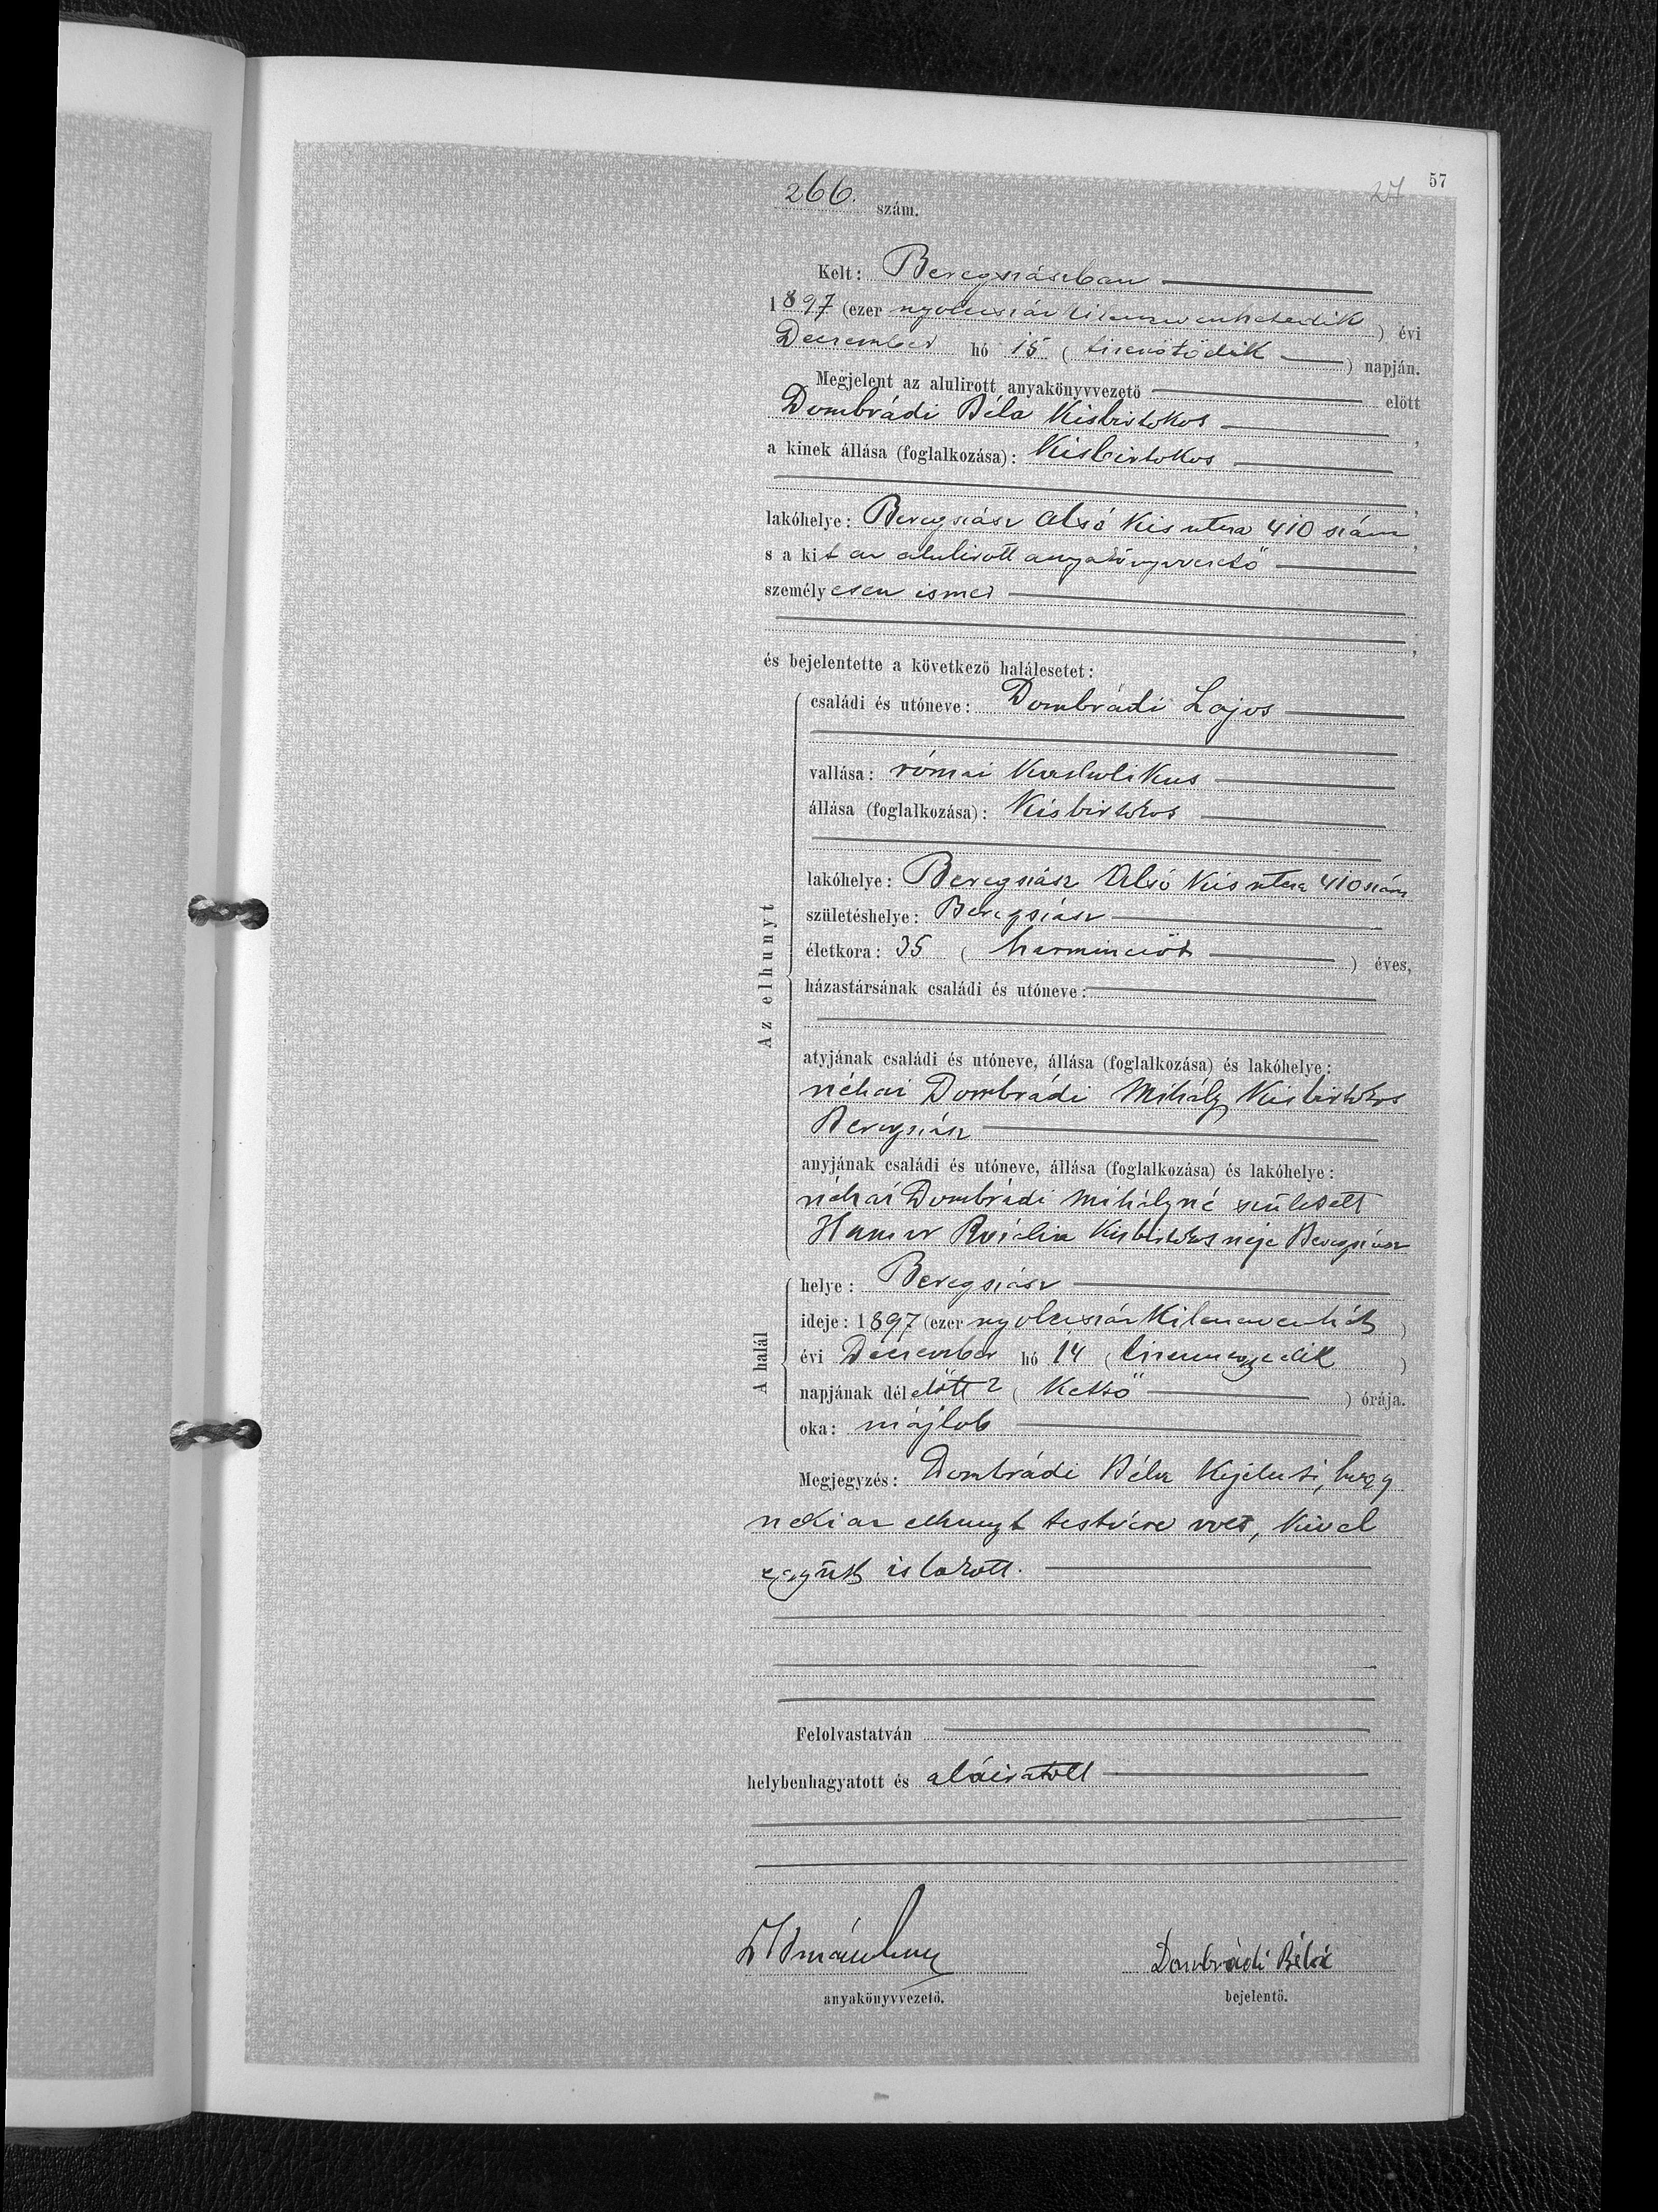 57
27
266. szám.
Kelt: Beregszászban
1897 (ezer nyolcszáz kilenczvenhetedik) évi
Deczember hó 15 (tizenötödik) napján.
Megjelent az alulirott anyakönyvvezető előtt
Dombrádi Béla Kisbirtokos,
a kinek állása (foglalkozása): Kisbirtokos
lakóhelye: Beregszász Alsó Kis utcza 410 szám,
s a kit az alulirott anyakönyvvezető
személyesen ismer
;
és bejelentette a következő halálesetet:
Az elhunyt
családi és utóneve: Dombrádi Lajos
vallása: római Katholikus
állása (foglalkozása): Kisbirtokos
lakóhelye: Beregszász Alsó Kis utcza 410 szám
születéshelye: Beregszász
életkora: 35 (harminczöt) éves,
házastársának családi és utóneve:
atyjának családi és utóneve, állása (foglalkozása) és lakóhelye:
néhai Dombrádi Mihály Kisbirtokos
Beregszász
anyjának családi és utóneve, állása (foglalkozása) és lakóhelye:
néhai Dombrádi Mihályné született
Rozália Kisbirtokos neje Beregszász
A halál
helye: Beregszász
ideje: 1897 (ezer nyolcszáz Kilenczvenhét)
évi Deczember hó 14 (tizennegyedik)
napjának délelőtt 2 (Kettő) órája.
oka: májlob
Megjegyzés: Dombrádi Béla Kijelenti, hogy
neki az elhunyt testvére volt, Kivel
együtt is lakott.
Felolvastatván
helybenhagyatott és aláiratott
anyakönyvvezető.
Dombrádi Béla
bejelentő.